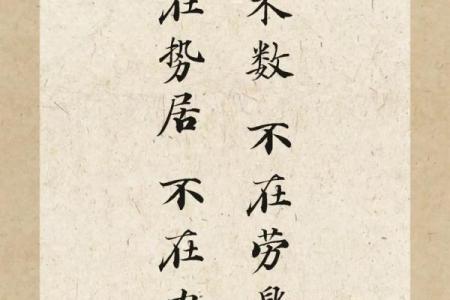 数 不在劳
在势居 不在